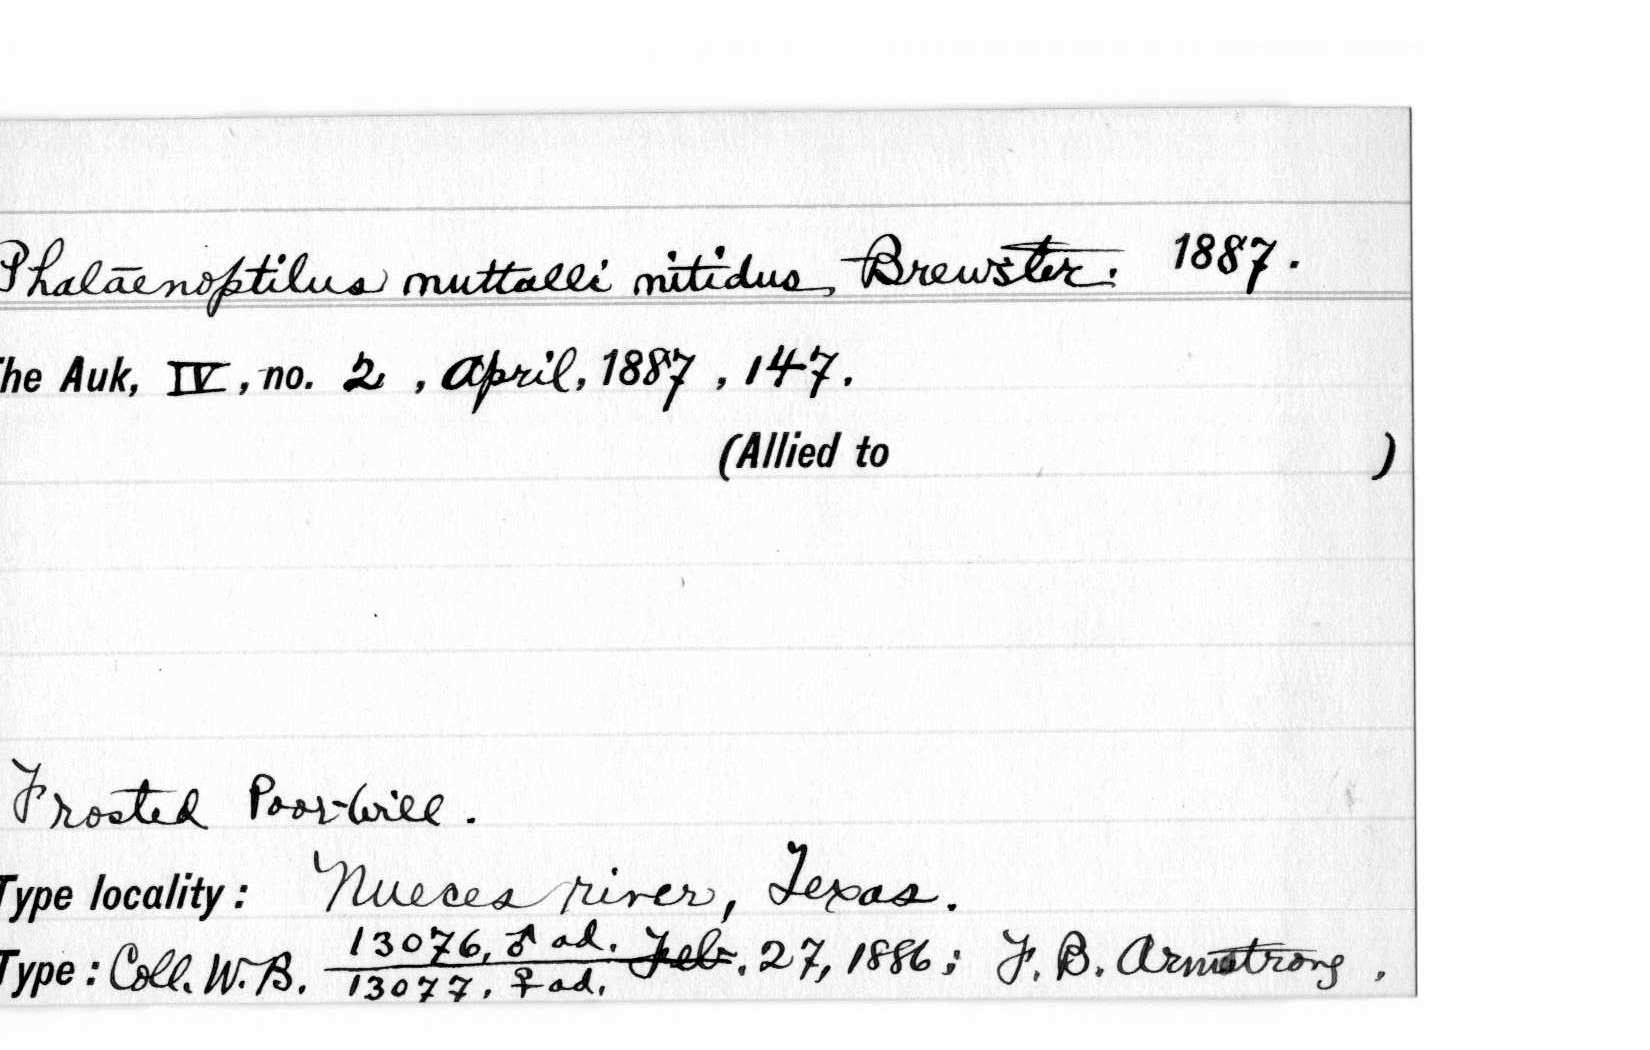 Phalāenoptilus nuttalli nitidus, Brewster. 1887.
The Auk, IV, no. 2, April, 1887, 147.
(Allied to )
Frosted Poor-will.
Type locality: Nueces river, Texas.
Type: Coll. W. B. 13076, ♂ ad. Feb. 27, 1886; F. B. Armstrong.
13077, ♀ ad.